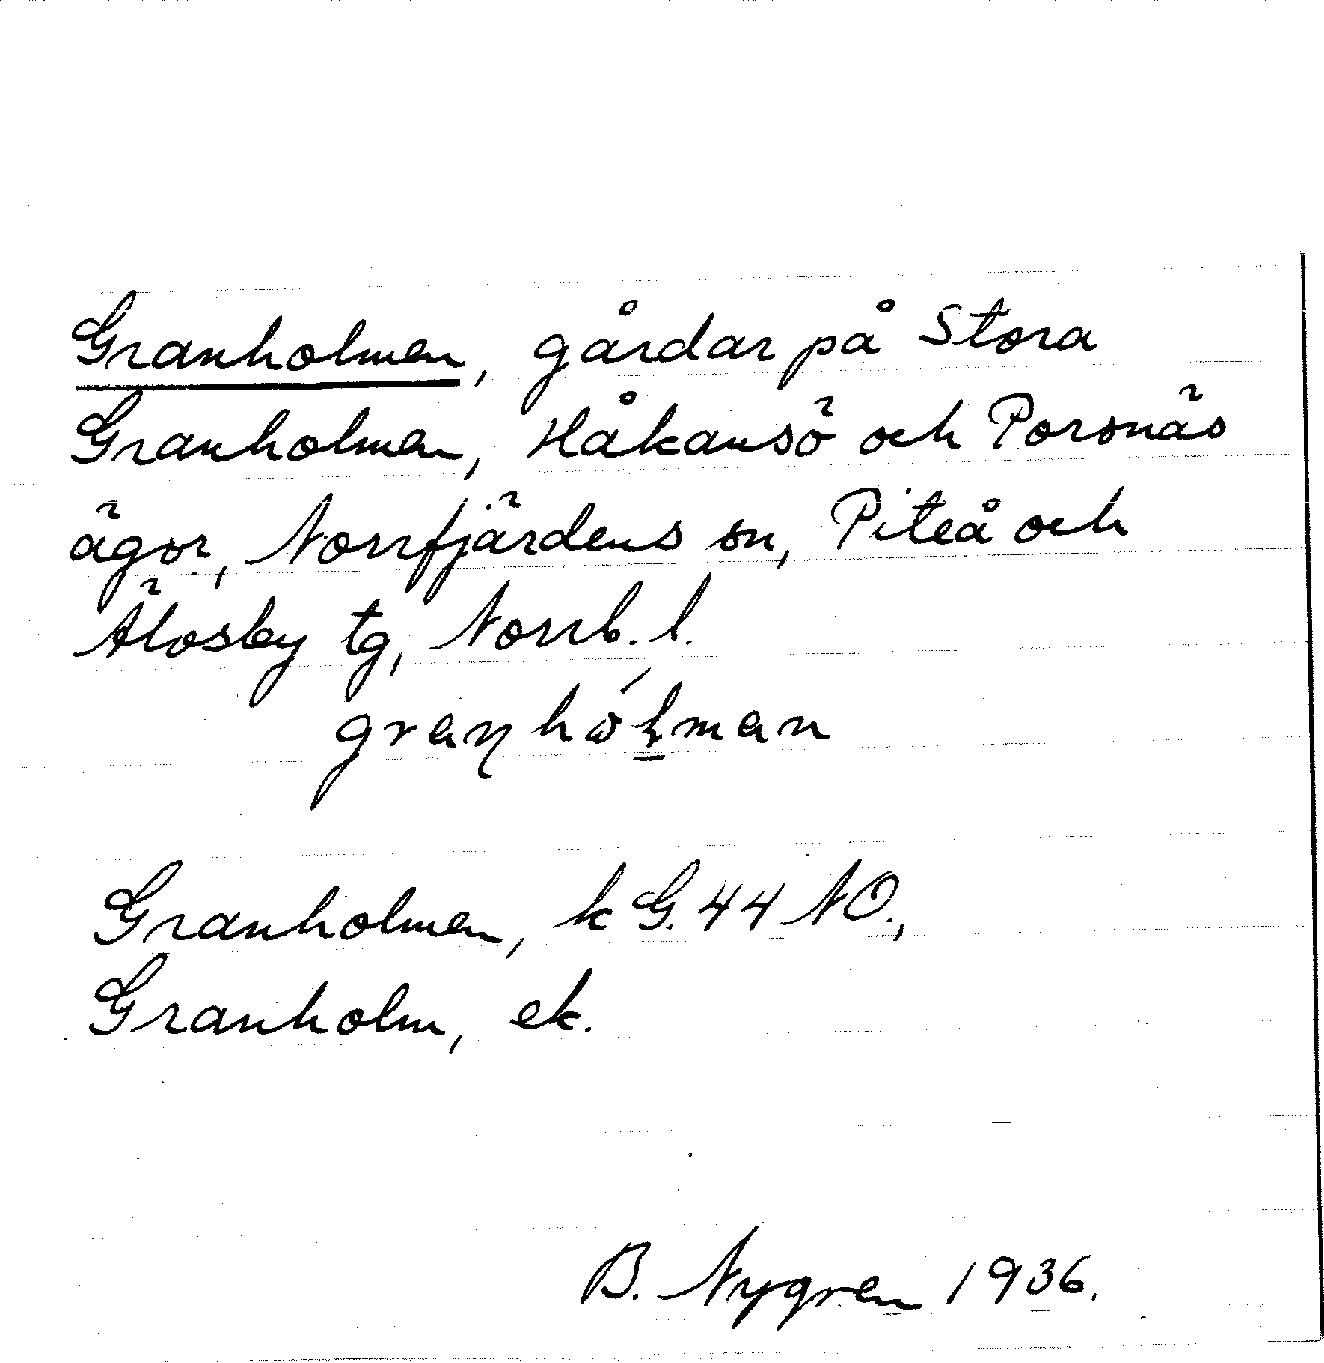 Granholmen, gårdar på Stora
Granholmen, Håkansö och Porsnäs
ägor, Norrfjärdens sn, Piteå och
Älvsby tg, Norrb. l.
Granholmen, k G. 44 NO.,
Granholm, ek.
B. Nygren 1936.